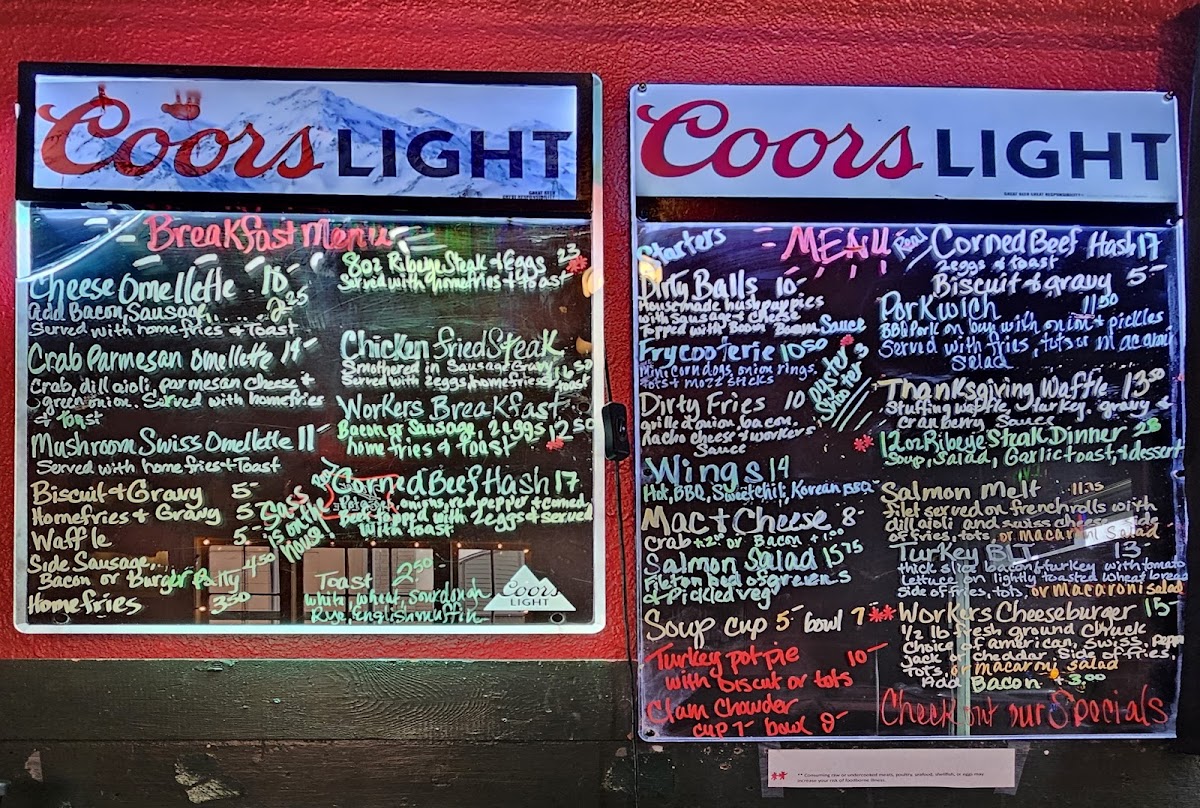 Coors LIGHT
GREAT BEER GREAT RESPONSIBILITY
Breakfast Menu
Cheese Omellette 10-
add Bacon, Sausage 2.25
Served with homefries + Toast
Crab Parmesan Omellette 14-
Crab, dill aioli, parmesan cheese +
green onion. Served with homefries
+ Toast
Mushroom Swiss Omellette 11-
Served with homefries + Toast
Biscuit + Gravy 5-
Homefries + Gravy 5-
Waffle 5-
Side Sausage,
Bacon or Burger Patty 4.50
Homefries 3.50
Sass is on the house!
8oz Ribeye Steak + Eggs 23
Served with homefries + toast
Chicken Fried Steak
Smothered in Sausage Gravy 16.50
Served with 2 eggs, homefries + toast
Workers Breakfast
Bacon or Sausage, 2 eggs 12.50
homefries + Toast
Corned Beef Hash 17
onion, red pepper + corned
Beef topped with 2 eggs + served
with toast
Toast 2.50
white, wheat, sourdough
Rye, english muffin
Coors
LIGHT
Coors LIGHT
GREAT BEER GREAT RESPONSIBILITY
MENU
Starters
Dirty Balls 10-
Housemade hushpuppies
with Sausage + Cheese
Topped with Boom Boom Sauce
Frycooterie 10.50
Mini corn dogs, onion rings,
tots + mozz sticks
oyster
Shooter 3
Dirty Fries 10
grilled onion, bacon,
nacho cheese + workers
Sauce
Wings 14
Hot, BBQ, Sweet chili, Korean BBQ
Mac + Cheese 8-
Crab +2.00 or Bacon +1.00
Salmon Salad 15.75
Filet on bed of greens
+ Pickled veg
Soup cup 5- bowl 7 **
Turkey pot pie 10-
with biscut or tots
Clam Chowder
cup 7- bowl 9-
Real Corned Beef Hash 17
2 eggs + toast
Biscuit + gravy 5-
Porkwich 11.50
BBQ Pork on bun with onion + pickles
Served with fries, tots or macaroni
Salad
Thanksgiving Waffle 13.50
Stuffing waffle, turkey, gravy +
cranberry Sauce
12oz Ribeye Steak Dinner 28
Soup, Salad, Garlic toast, + dessert
Salmon Melt 11.75
filet served on french rolls with
dill aioli and swiss cheese side
of fries, tots, or macaroni salad
Turkey BLT 13-
thick slice bacon + turkey with tomato
lettuce on lightly toasted wheat bread
Side of fries, tots, or macaroni salad
Workers Cheeseburger 15-
1/2 lb fresh ground Chuck
Choice of american, swiss, pepper
jack or cheddar. Side of fries,
tots, or macaroni salad
Add Bacon +3.00
Check out our Specials
** Consuming raw or undercooked meats, poultry, seafood, shellfish, or eggs may
increase your risk of foodborne illness.